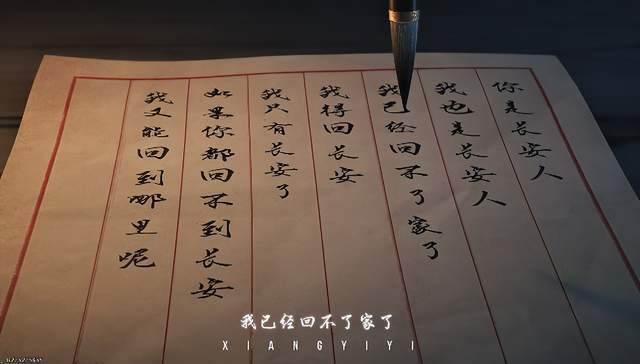 你是长安人
我也是长安人
我已经回不了家了
我得回长安
我只有长安了
如果你都回不到长安
我又能回到哪里呢
我已经回不了家了
XIANGYIYI